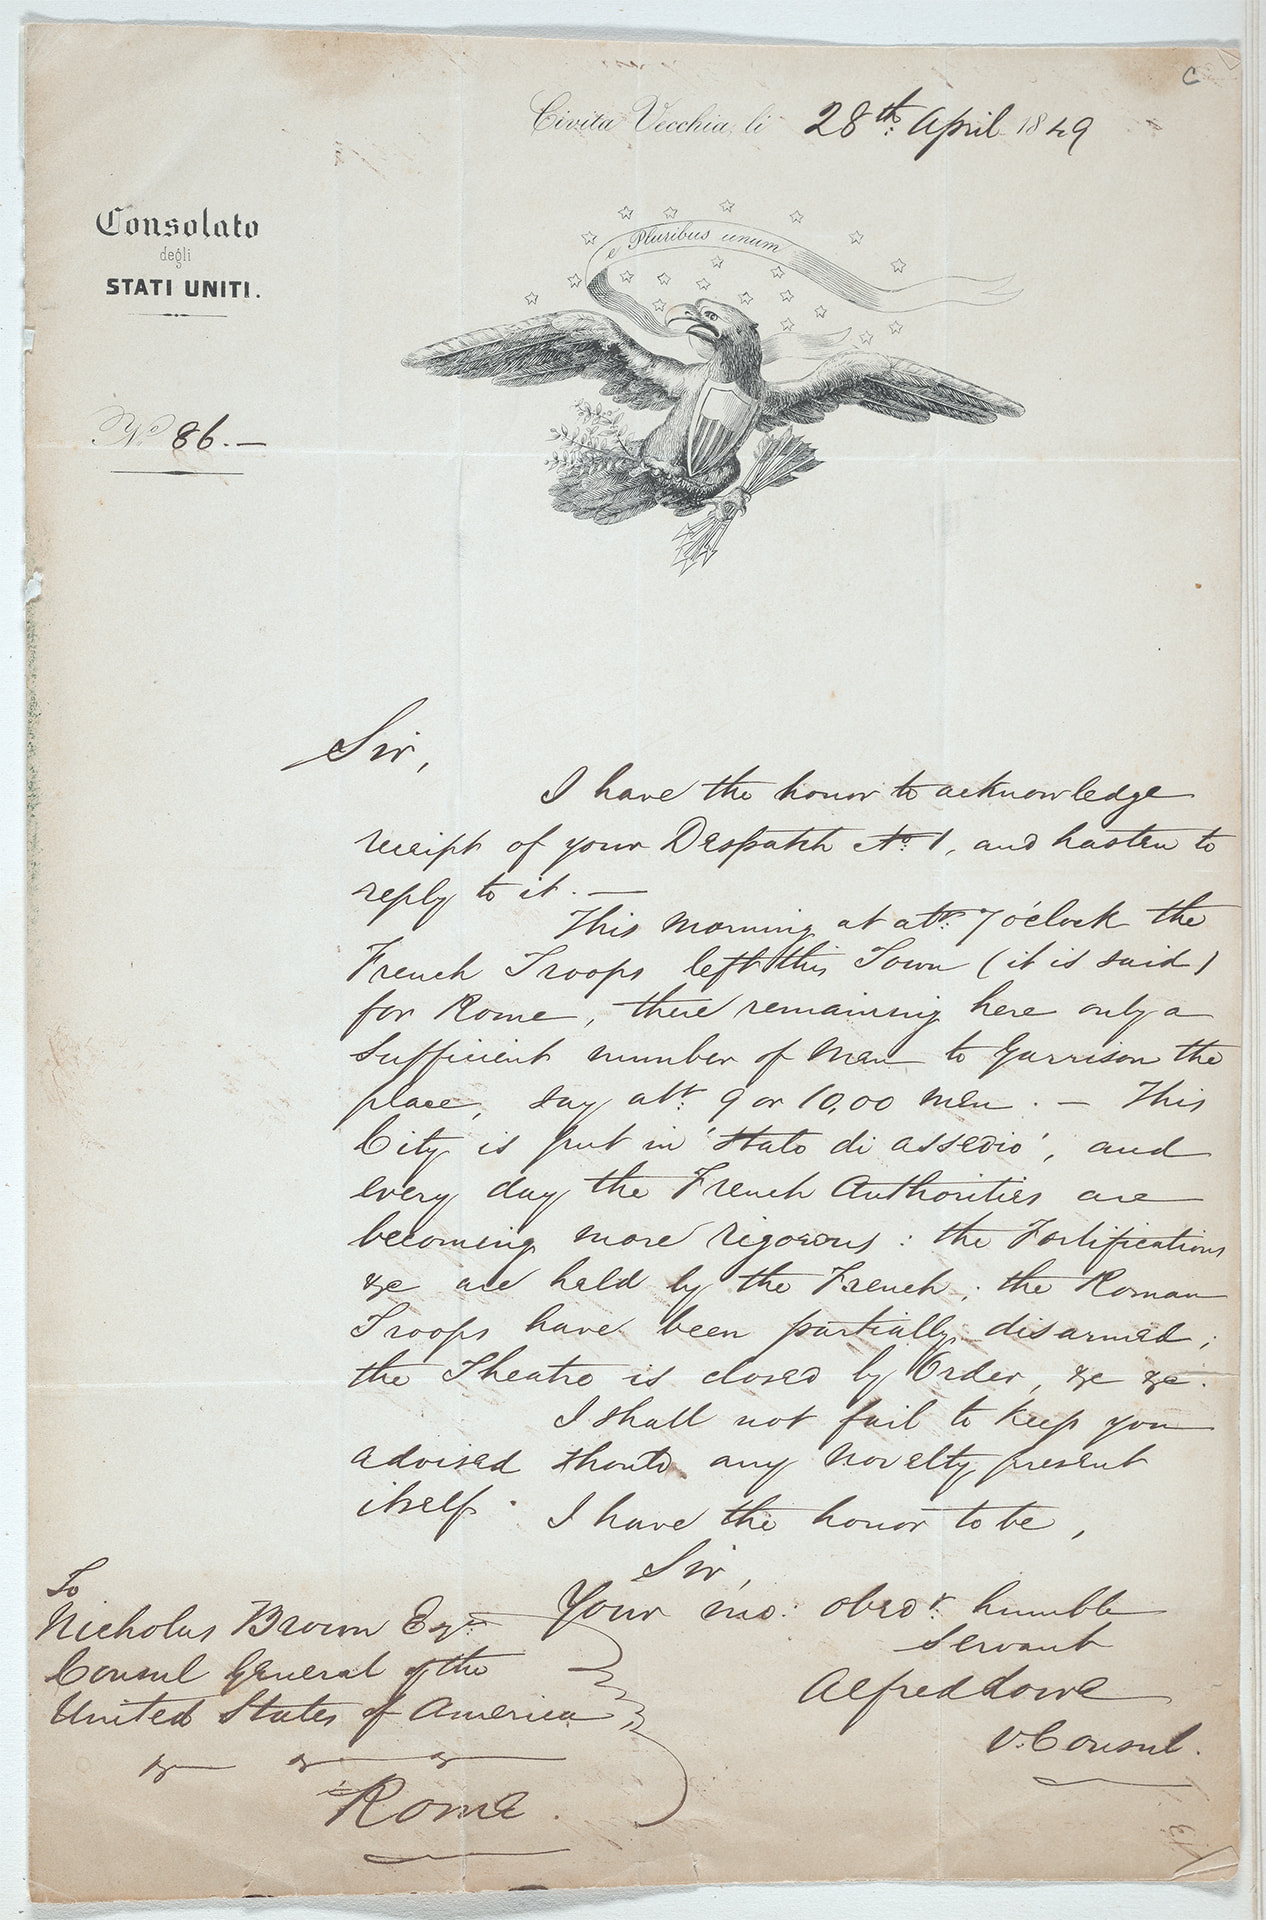 C
Civita Vecchia, li 28th. April 1849
Consolato
degli
STATI UNITI.
e Pluribus unum
No 86.—
Sir,
I have the honor to acknowledge
receipt of your Despatch No. 1, and hasten to
reply to it. —
This morning at abt. 7 o'clock the
French Troops left this Town (it is said)
for Rome, there remaining here only a
sufficient number of Men to Garrison the
place, say abt. 9 or 10,00 men. — This
City is put in 'stato di assedio', and
every day the French Authorities are
becoming more rigorous : the Fortifications
&c are held by the French ; the Roman
Troops have been partially disarmed ;
the Theatre is closed by Order, &c &c.
I shall not fail to keep you
advised should any Novelty present
itself.
I have the honor to be,
Sir,
Your mo. obedt. humble
servant
Alfred Lowe
V. Consul.
To
Nicholas Brown Esqr.
Consul General of the
United States of America,
&c &c &c
Rome.